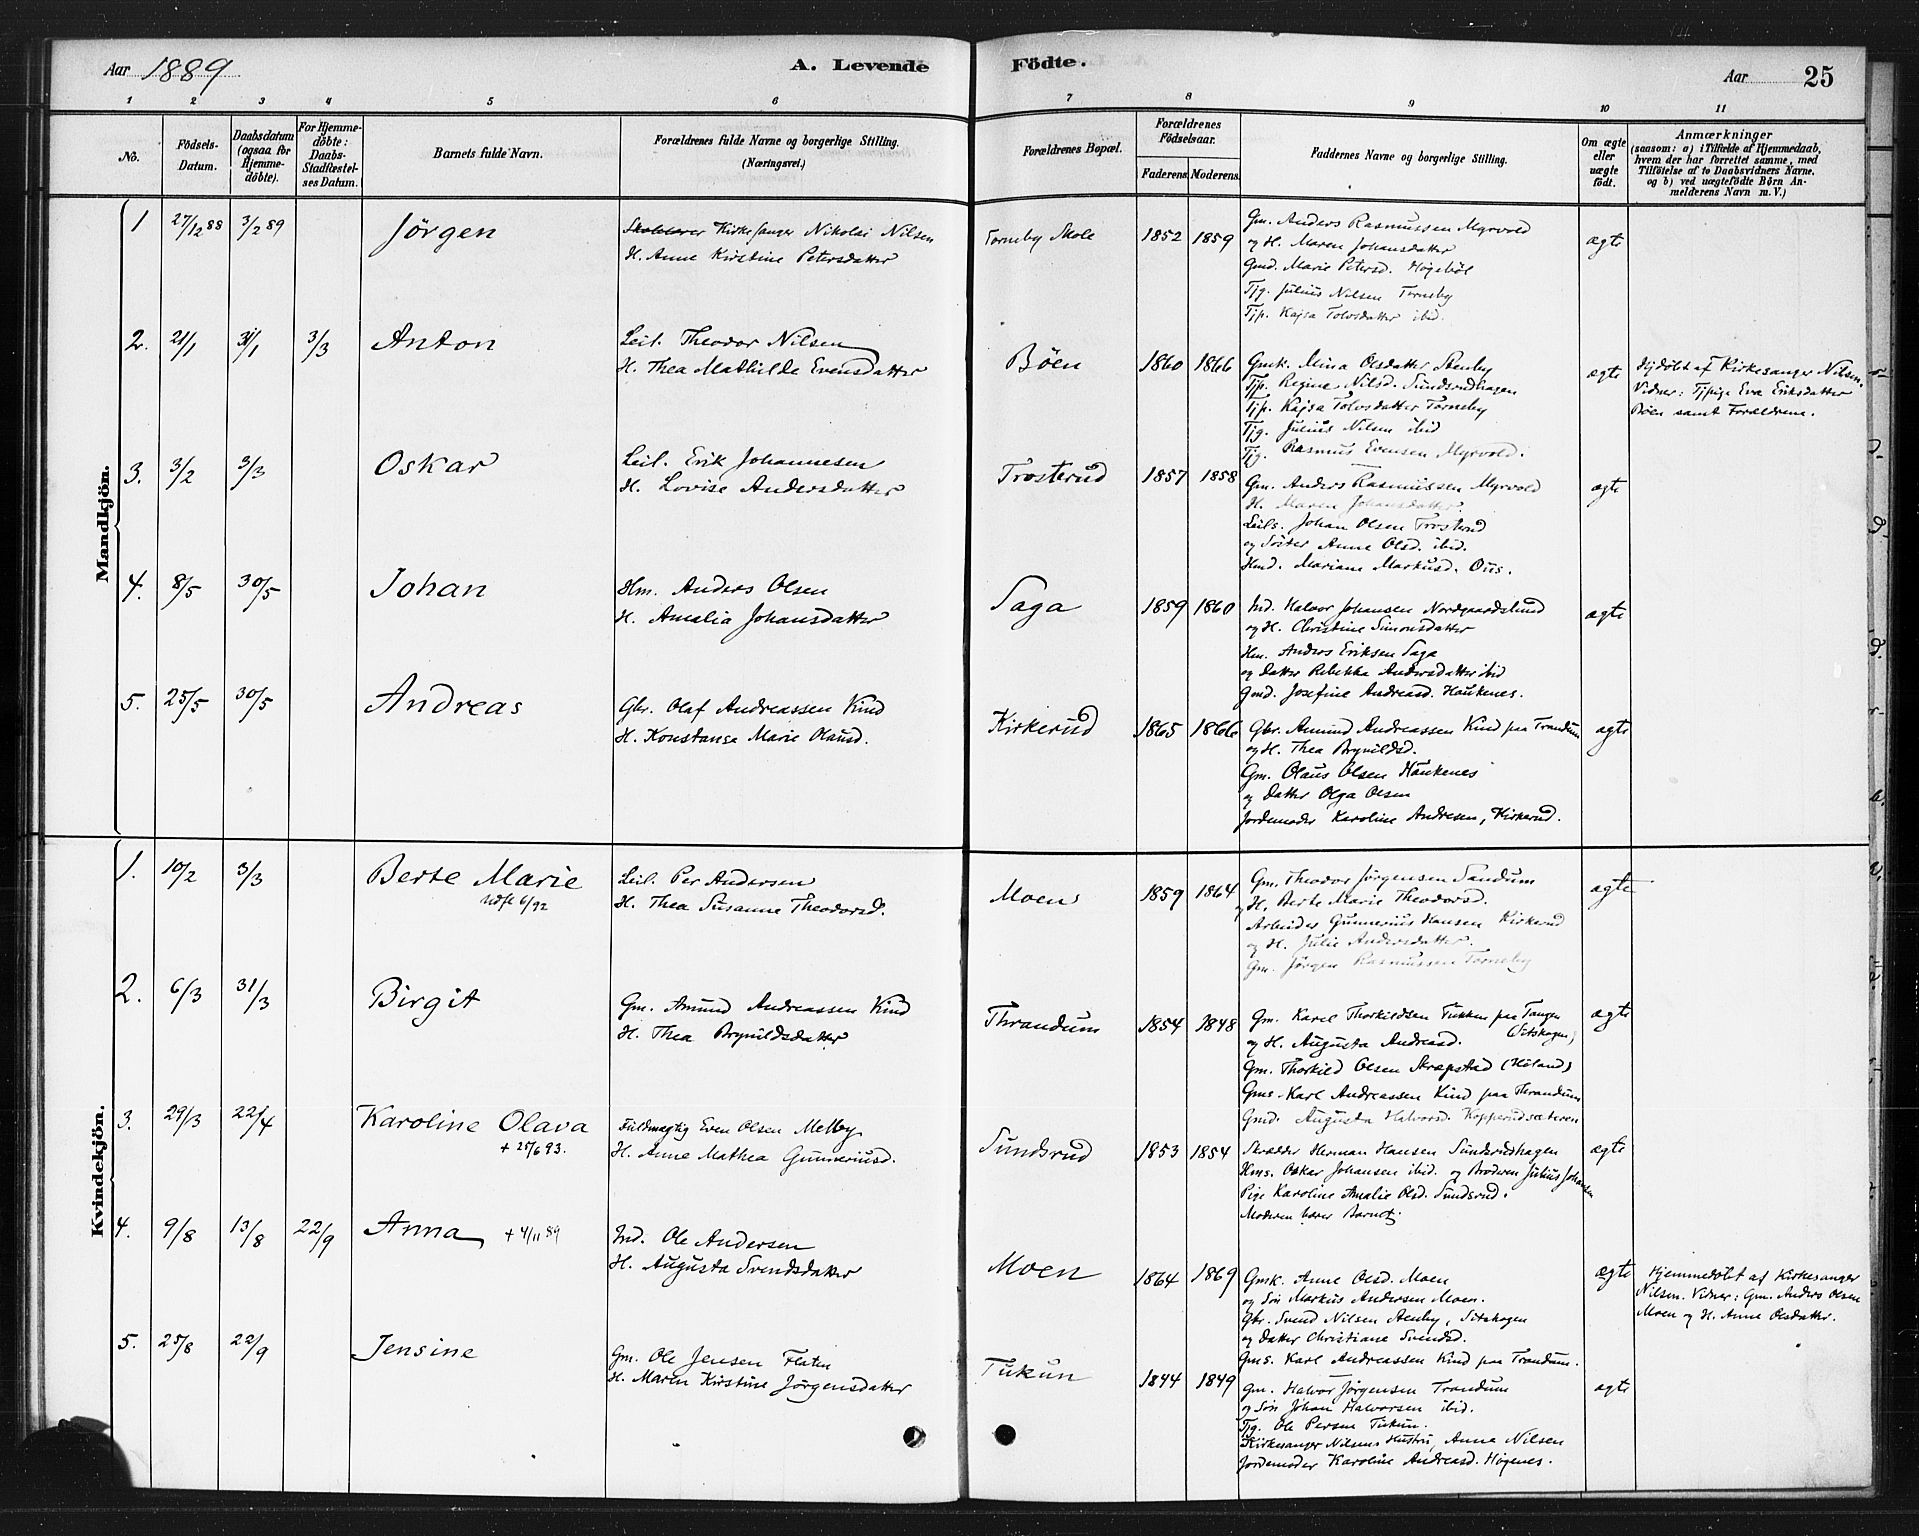 Aar 1889
A. Levende Födte.
Aar 25
1 2 3 4 5 6 7 8 9 10 11
No.
Födsels-Datum.
Daabsdatum (ogsaa for Hjemme-döbte).
For Hjemme-döbte: Daabs-Stadfæstel-ses Datum.
Barnets fulde Navn.
Forældrenes fulde Navne og borgerlige Stilling. (Næringsvei.)
Forældrenes Bopæl.
Forældrenes Födselsaar.
Faderens. Moderens.
Faddernes Navne og borgerlige Stilling.
Om ægte eller uægte födt.
Anmærkninger
(saasom: a) i Tilfælde af Hjemmedaab,
hvem der har forrettet samme, med
Tilföielse af to Daabsvidners Navne,
og b) ved uægtefödte Börn An-
melderens Navn m. V.)
Mandkjön.
1 27/12 88 3/2 89 Jörgen
Skolelærer Kirkesanger Nikolai Nilsen
H. Anne Kirstine Petersdatter
Torneby Skole 1852 1859
Gm. Anders Rasmussen Myrvold
og H. Maren Johansdatter
Gmd. Marie Petersd. Högeböl
Tjg. Julius Nilsen Torneby
Tjp. Kajsa Tolvsdatter ibid.
ægte
2. 21/1 31/1 3/3 Anton
Leil. Theodor Nilsen
H. Thea Mathilde Evensdatter
Böen 1860 1866
Gmk. Mina Olsdatter Stenby
Tjp. Regine Nilsd. Sundsrudhagen
Tjp. Kajsa Tolvsdatter Torneby
Tjg. Julius Nilsen ibid
Tjg. Rasmus Evensen Myrvold.
ægte
Hjdöbt af Kirkesanger Nilsen.
Vidner: Tjpige Eva Eriksdatter
Böen samt Forældrene.
3. 3/2 3/3 Oskar
Leil. Erik Johannesen
H. Lovise Andersdatter
Trosterud 1857 1858
Gm. Anders Rasmussen Myrvold
H. Maren Johansdatter
Leils. Johan Olsen Trosterud
og Söster Anne Olsd. ibid.
Hmd. Mariane Markusd. Ous.
ægte
4. 8/5 30/5 Johan
Hm. Anders Olsen
H. Amalia Johansdatter
Saga 1859 1860
Ind. Halvor Johansen Nordgaardslund
og H. Christine Simonsdatter
Hm. Anders Eriksen Saga
og Datter Rebekka Andersdatter ibid
Gmd. Josefine Andreasd. Haukenes.
ægte
5. 25/5 30/5 Andreas
Gbr. Olaf Andreassen Kind
H. Konstanse Marie Olausd.
Kirkerud 1865 1866
Gbr. Amund Andreassen Kind paa Trandum
og H. Thea Brynildsd.
Gm. Olaus Olsen Haukenes
og Datter Olga Olsen
Jordemoder Karoline Andresen, Kirkerud.
ægte
Kvindekjön.
1. 10/2 3/3 Berte Marie
Udfl 6/92
Leil. Per Andersen
H. Thea Susanne Theodorsd.
Moen 1859 1864
Gm. Theodor Jörgensen Sandum
og H. Berte Marie Theodorsd.
Arbeider Gunnerius Hansen Kirkerud
og H. Julie Andersdatter.
Gm. Jörgen Rasmussen Torneby
ægte
2. 6/3 31/3 Birgit
Gm. Amund Andreassen Kind
H. Thea Brynildsdatter
Thrandum 1854 1848
Gm. Karel Thorkildsen Tukken paa Tangen
og H. Augusta Andreasd. (Sitskogen)
Gm. Thorkild Olsen Skrepstad (Höland)
Gms. Karl Andreassen Kind paa Thrandum
Gmd. Augusta Halvorsd. Kopperudsæteren
ægte
3. 29/3 22/4 Karoline Olava
+ 25/6 93.
Fuldmægtig Even Olsen Melby
H. Anne Mathea Gunneriusd.
Sundsrud 1853 1854
Skrædder Herman Hansen Sundsrudhagen
Hms. Oskar Johansen ibid. og Broderen Julius Johansen
Pige Karoline Amalie Olsd. Sundsrud.
Moderen bærer Barnet.
ægte
4. 9/8 13/8 22/9 Anna + 4/11 89
Ind. Ole Andersen
H. Augusta Svendsdatter
Moen 1864 1869
Gmk. Anne Olsd. Moen
og Sön Markus Andersen Moen.
Gbr. Svend Nilsen Stenby, Sitskogen
og Datter Christiane Svendsd.
Gms. Karl Andreassen Kind paa Trandum.
ægte
Hjemmedöbt af Kirkesanger
Nilsen. Vidner: Gm. Anders Olsen
Moen og H. Anne Olsdatter.
5. 25/8 22/9 Jensine
Gm. Ole Jensen Flaten
H. Maren Kirstine Jörgensdatter
Tukun 1844 1849
Gm. Halvor Jörgensen Trandum
og Sön Johan Halvorsen ibid.
Tjg. Ole Persen Tukun.
Kirkesanger Nilsens Hustru, Anne Nilsen
Jordemoder Karoline Andreasd. Högenes.
ægte